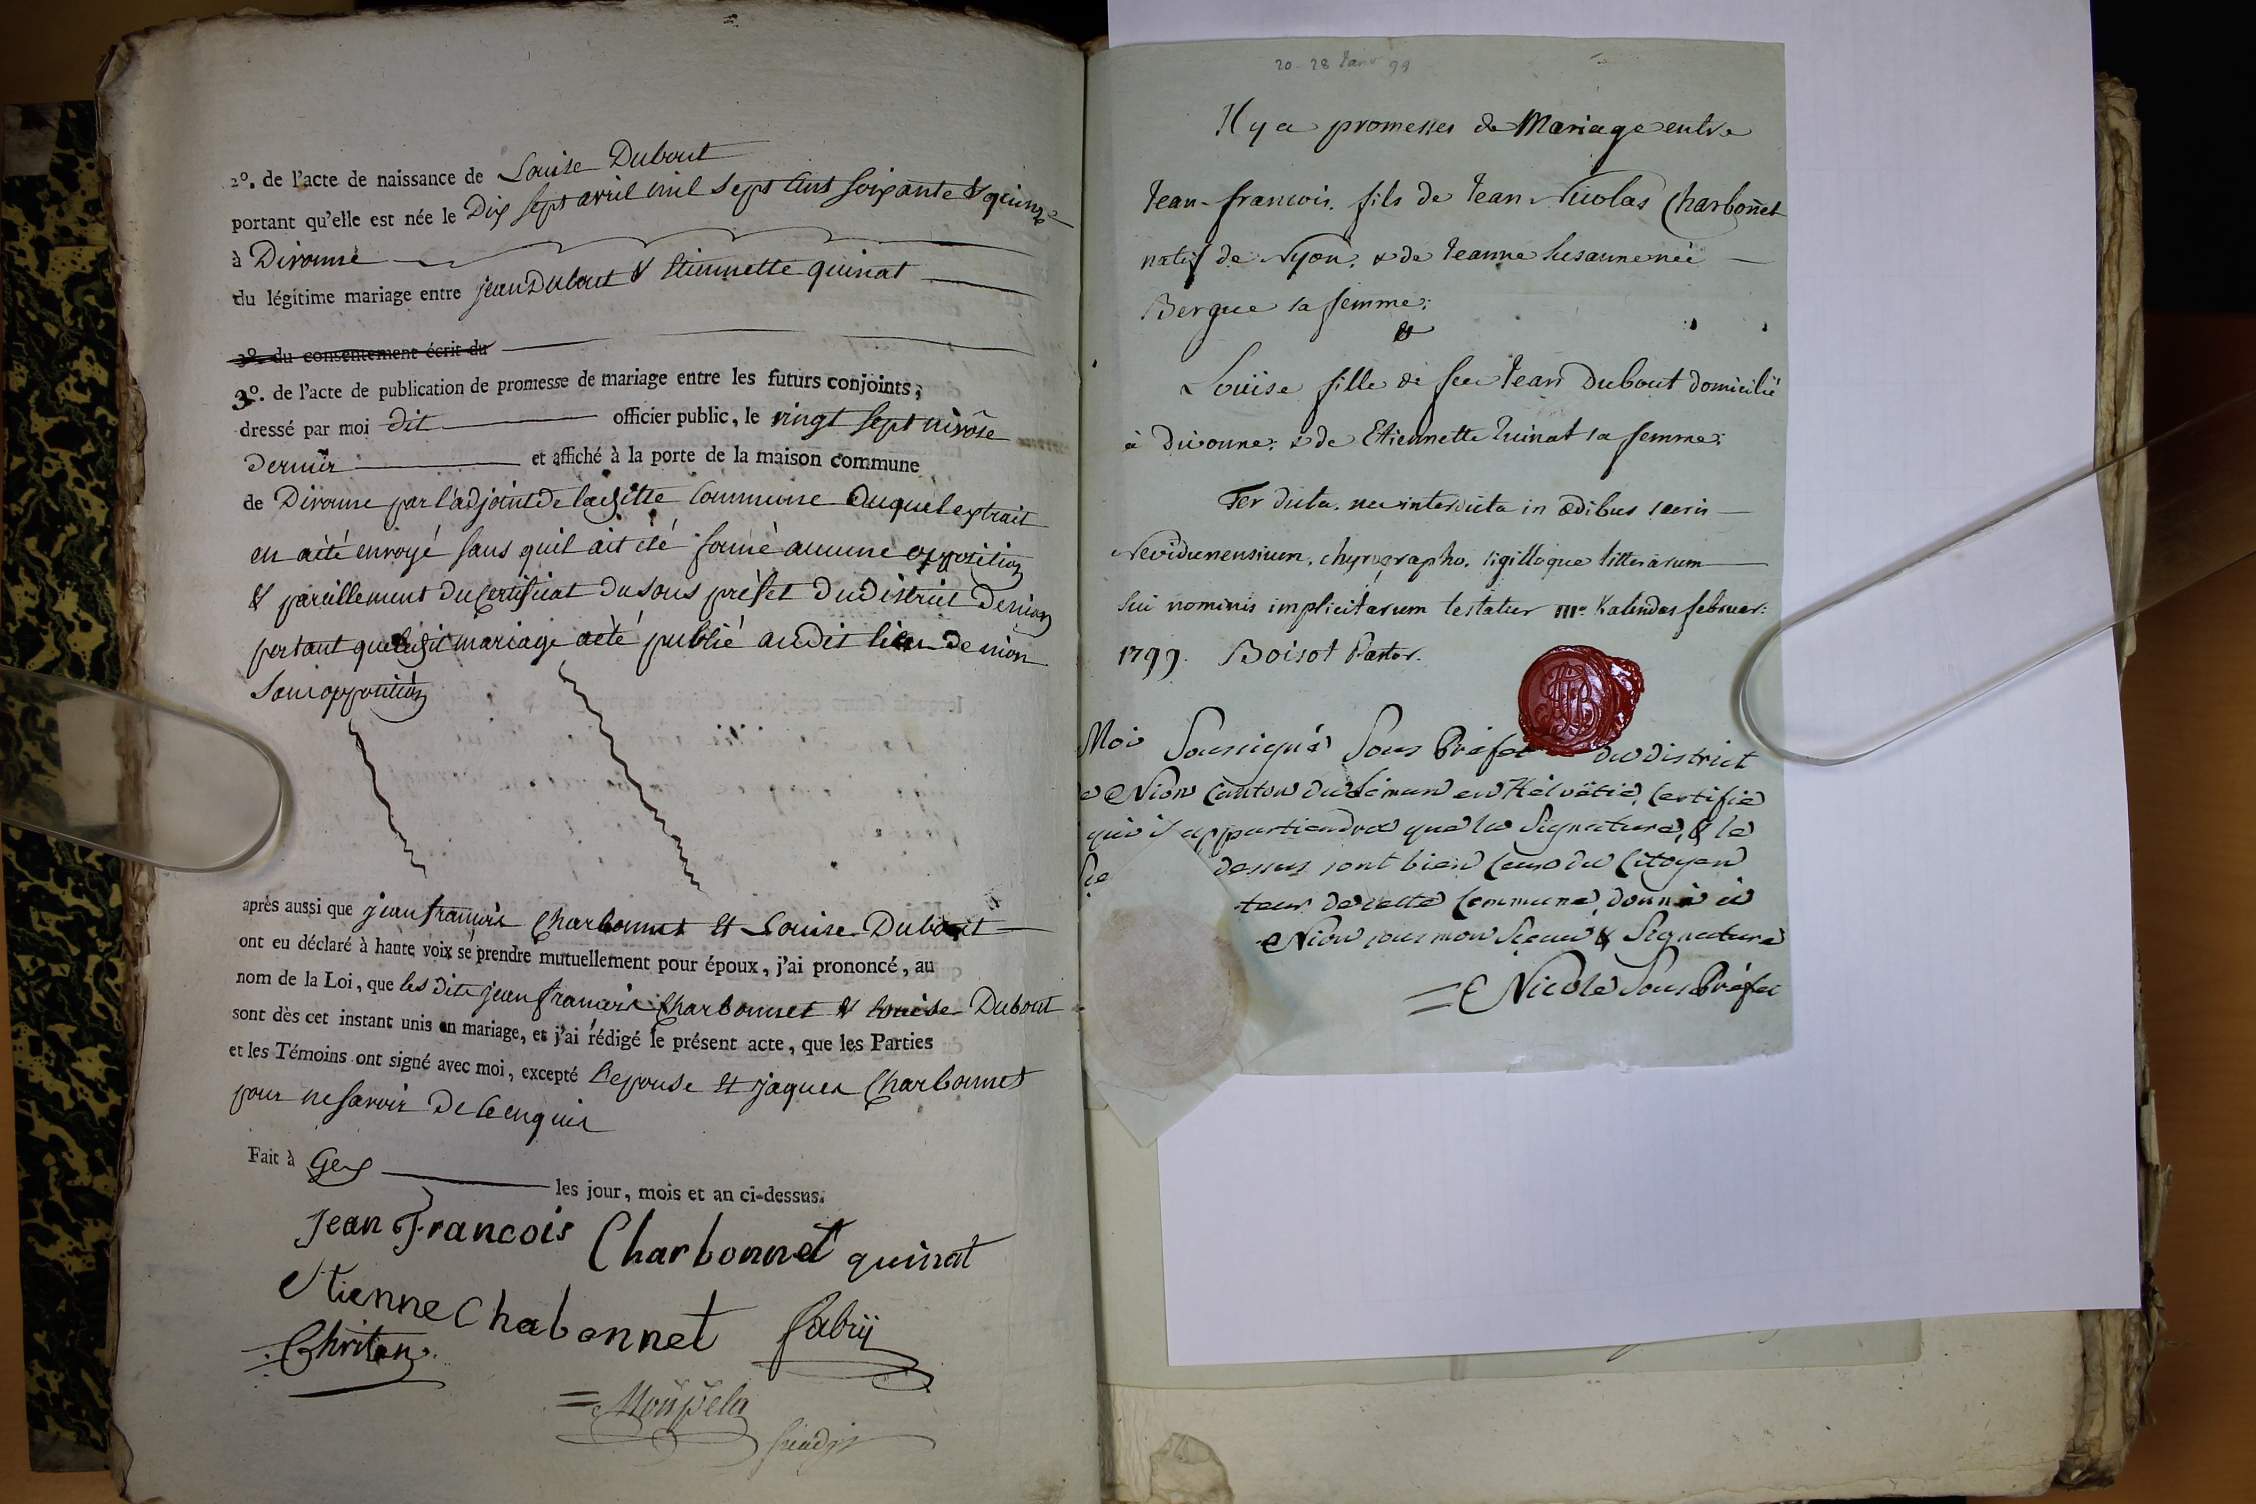 2º. de l'acte de naissance de Louise Dubout
portant qu'elle est née le Dix sept avril mil sept cens soixante & quinze
à Divonne
du légitime mariage entre jean Dubout & Etiennette quinat
3º. du consentement écrit du
3º. de l'acte de publication de promesse de mariage entre les futurs conjoints;
dressé par moi dit officier public, le vingt sept nivôse
dernier et affiché à la porte de la maison commune
de Divonne par l'adjoint de laditte Commune duquel extrait
en aété envoyé sans quil ait été formé aucune opposition
& pareillement du Certificat du sous préfet du district denion
portant queledit mariage aété publié audit lieu de nion
sans opposition
après aussi que jean françois Charbonnet et Louise Dubout
ont eu déclaré à haute voix se prendre mutuellement pour époux, j'ai prononcé, au
nom de la Loi, que les dits jean françois Charbonnet & Louise Dubout
sont dès cet instant unis en mariage, et j'ai rédigé le présent acte, que les Parties
et les Témoins ont signé avec moi, excepté Lepouse et jaques Charbonnet
pour ne savoir de ce enquis
Fait à Gex les jour, mois et an ci-dessus.
Jean Francois Charbonnet quinat
Etienne Chabonnet fabry
20-28 Janv 99
Il y a promesses de Mariage entre
Jean-francois. fils de Jean Nicolas Charbonnet
natif de Nyon. & de Jeanne Susanne née
Bergue sa femme;
&
Louïse fille de feu Jean Dubout domicilié
à Divonne; & de Etiennette Quinat sa femme;
Ter dicta. nec interdicta in ædibus sacris
Nevidunensium. chyrographo. sigilloque litterarum
sui nominis implicitarum testatur IIIº. Kalendas februar:
1799. Boisot Pastor.
Moi Soussigné Sous Préfet du district
e Nion Canton du Léman en Helvétie, Certifie
qui il appartiendra que la Signature, & le
Sce dessus sont bien Ceux du Citoyen
teur de cette Commune, donné à
Nion sous mon Sceau & Signature
Nicole Sous Préfet